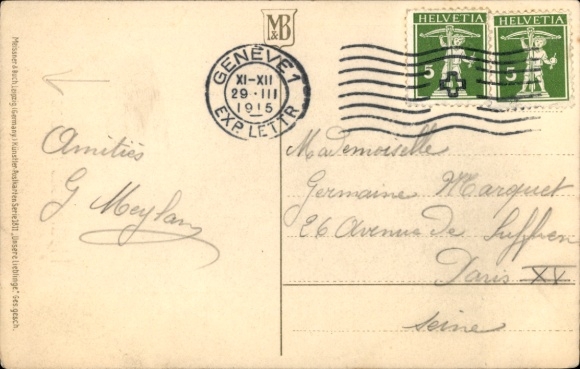 M&B
HELVETIA
HELVETIA
5
5
GENÈVE 1
XI-XII
29·III
1915
EXP. LETTR
Meissner & Buch, Leipzig (Germany) Künstler-Postkarten Serie
"Unsere Lieblinge." Ges. gesch.
Amitiés
G. Meylan
Mademoiselle
Germaine Marquet
26 Avenue de Suffren
Paris XV
Seine